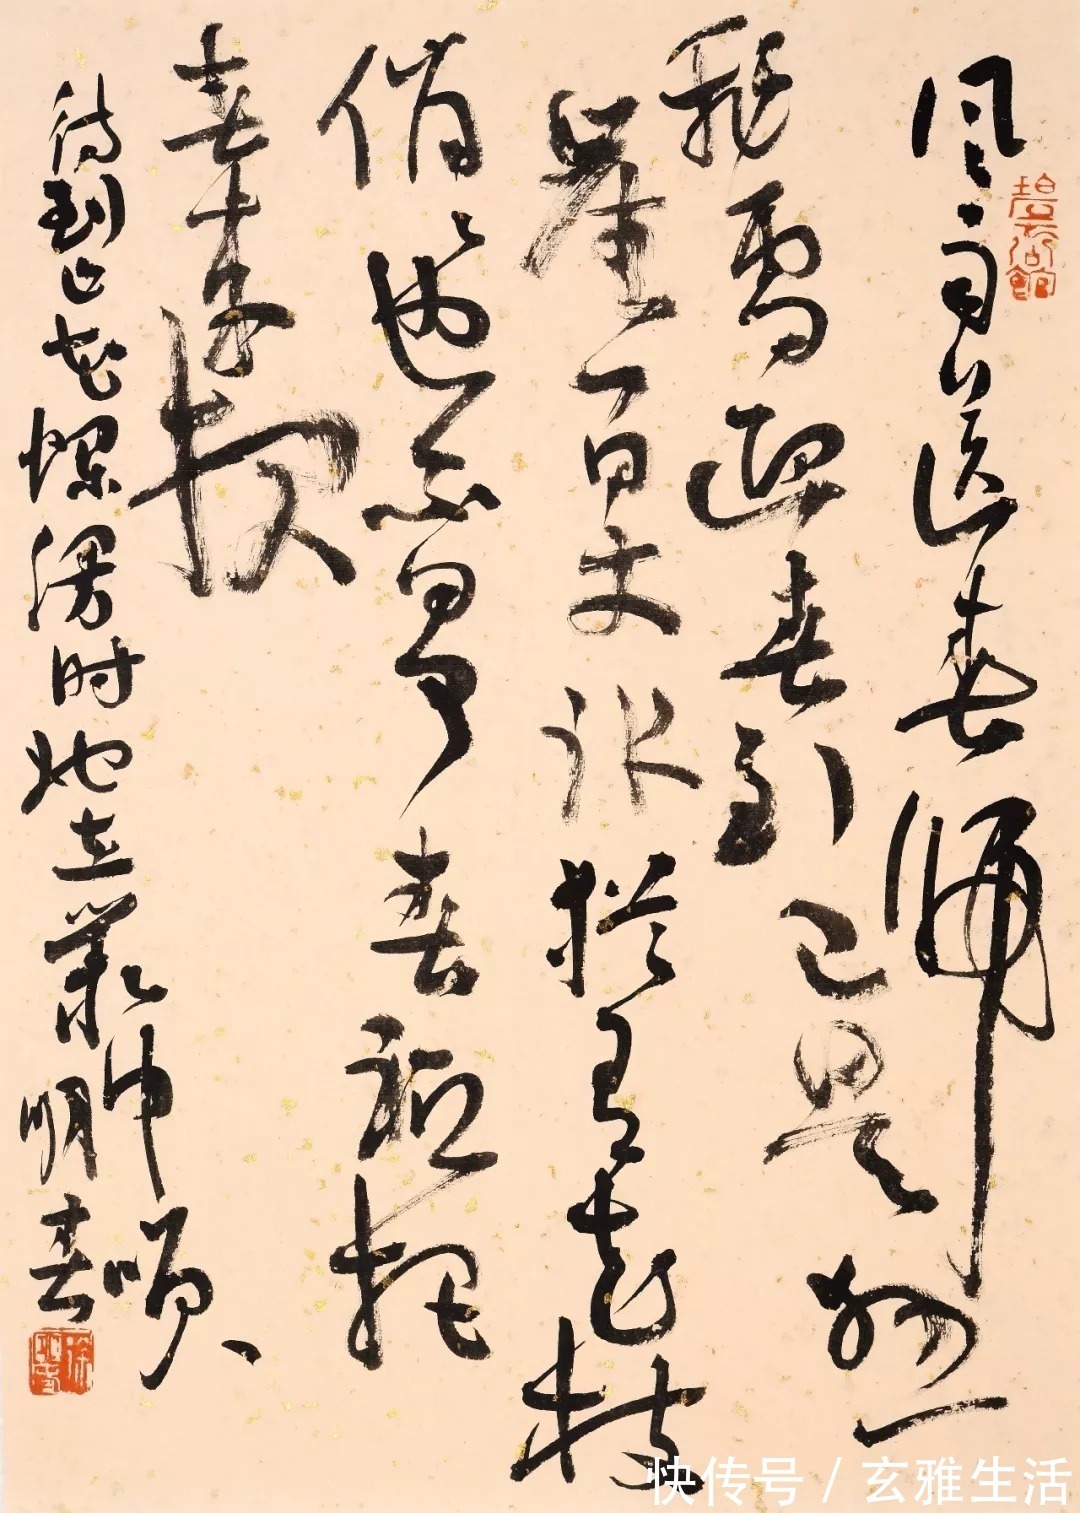 风雨送春归
飛雪迎春到已是悬
崖百丈冰猶有花枝
俏〻也不争春祗把
春来报
待到山花爛漫时她在叢中咲
明春
快传号 / 玄雅生活